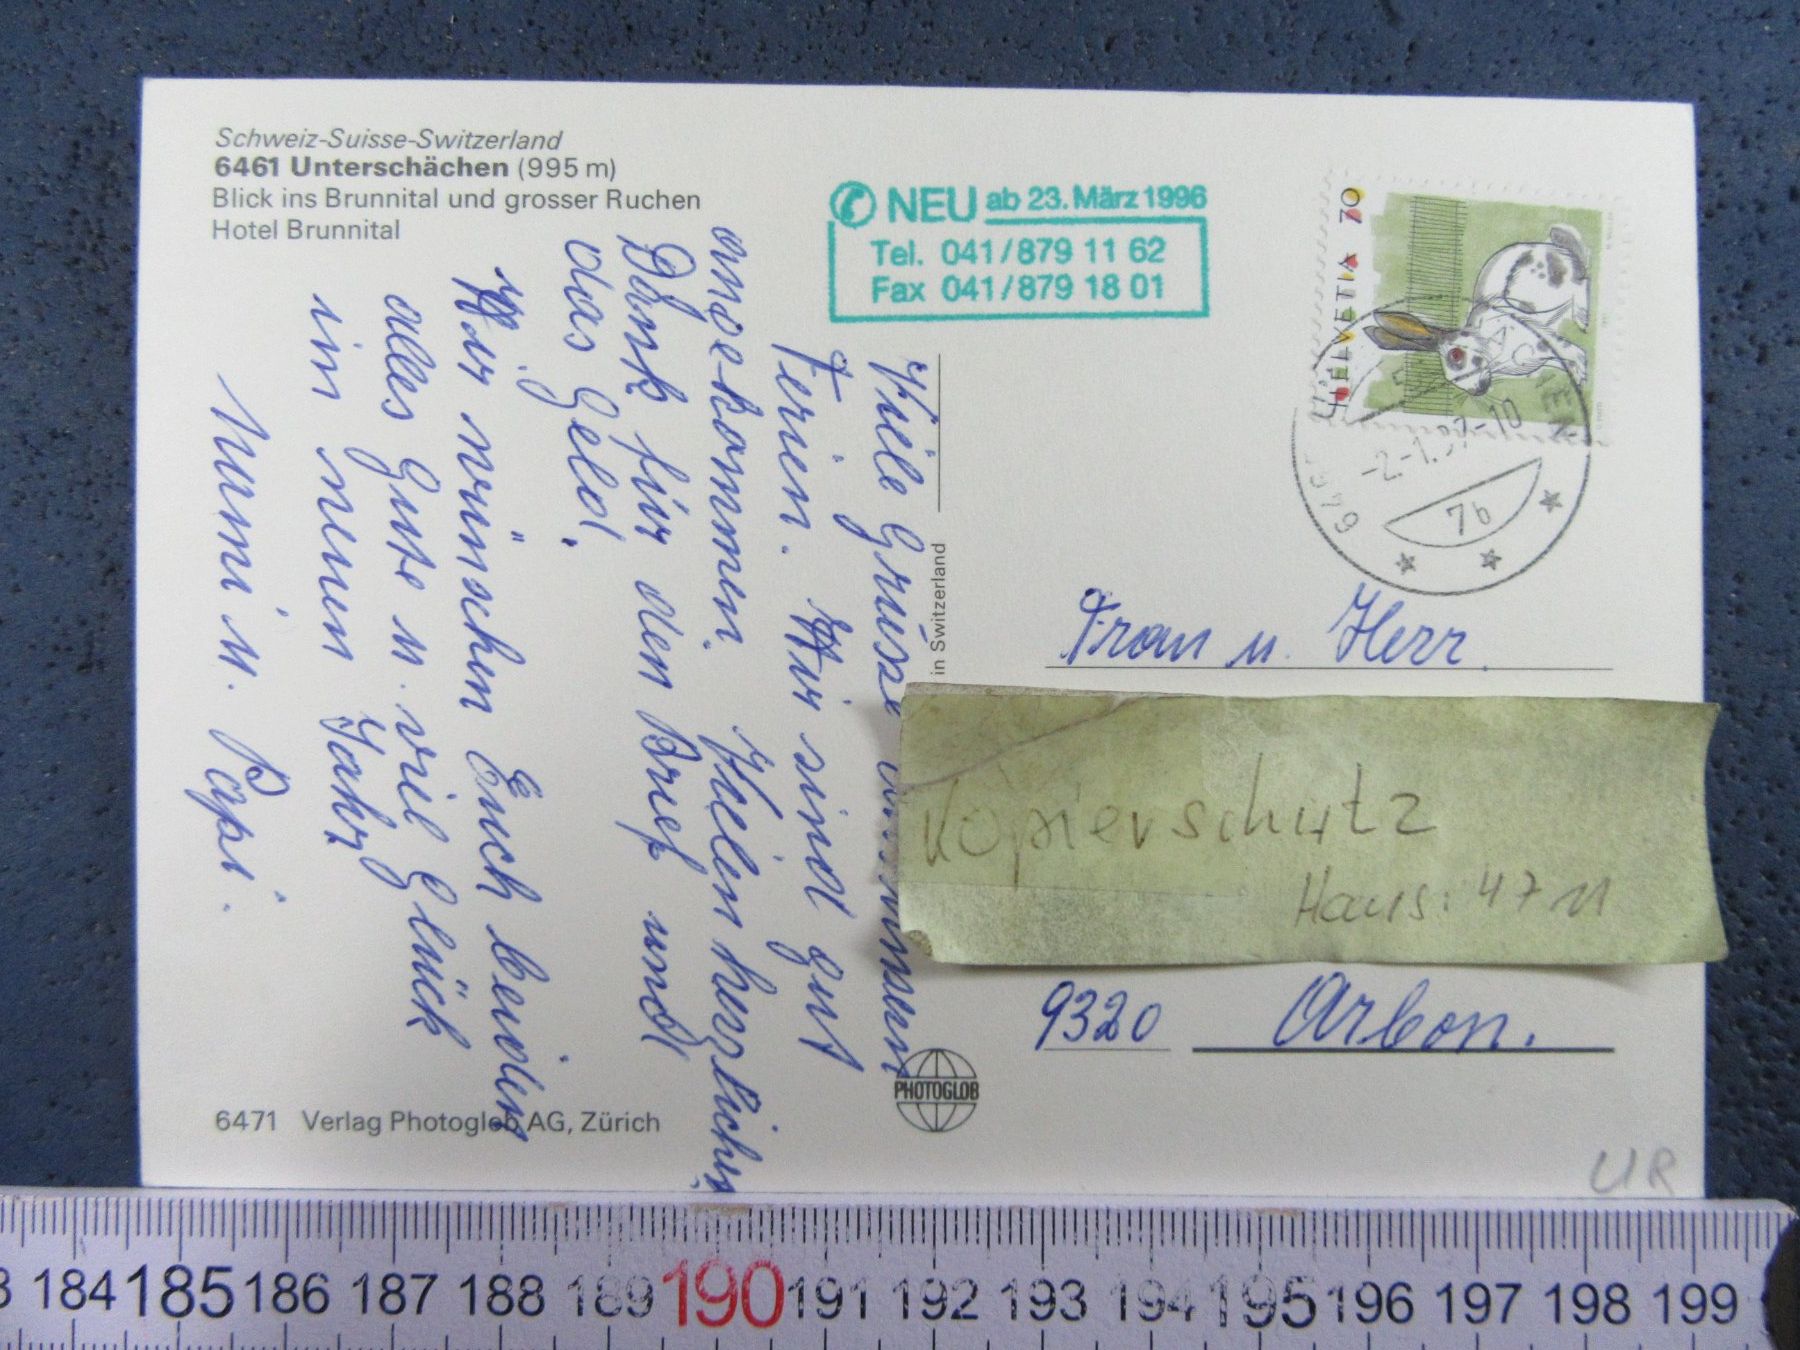 Schweiz-Suisse-Switzerland
6461 Unterschächen (995 m)
Blick ins Brunnital und grosser Ruchen
Hotel Brunnital
NEU ab 23. März 1996
Tel. 041/879 11 62
Fax 041/879 18 01
HELVETIA 70
-2.-1.97-10
7b
Viele Grüsse
Ferien. Wir sind gut
angekommen. Vielen herzlichen
Dank für den Brief und
das Geld.
Wir wünschen Euch beiden
alles Gute u. viel Glück
im neuen Jahr.
Mami u. Papi.
in Switzerland
Frau u. Herr.
Kopierschutz
Haus: 47 11
9320 Arbon.
PHOTOGLOB
6471 Verlag Photoglob AG, Zürich
UR
184 185 186 187 188 189 190 191 192 193 194 195 196 197 198 199